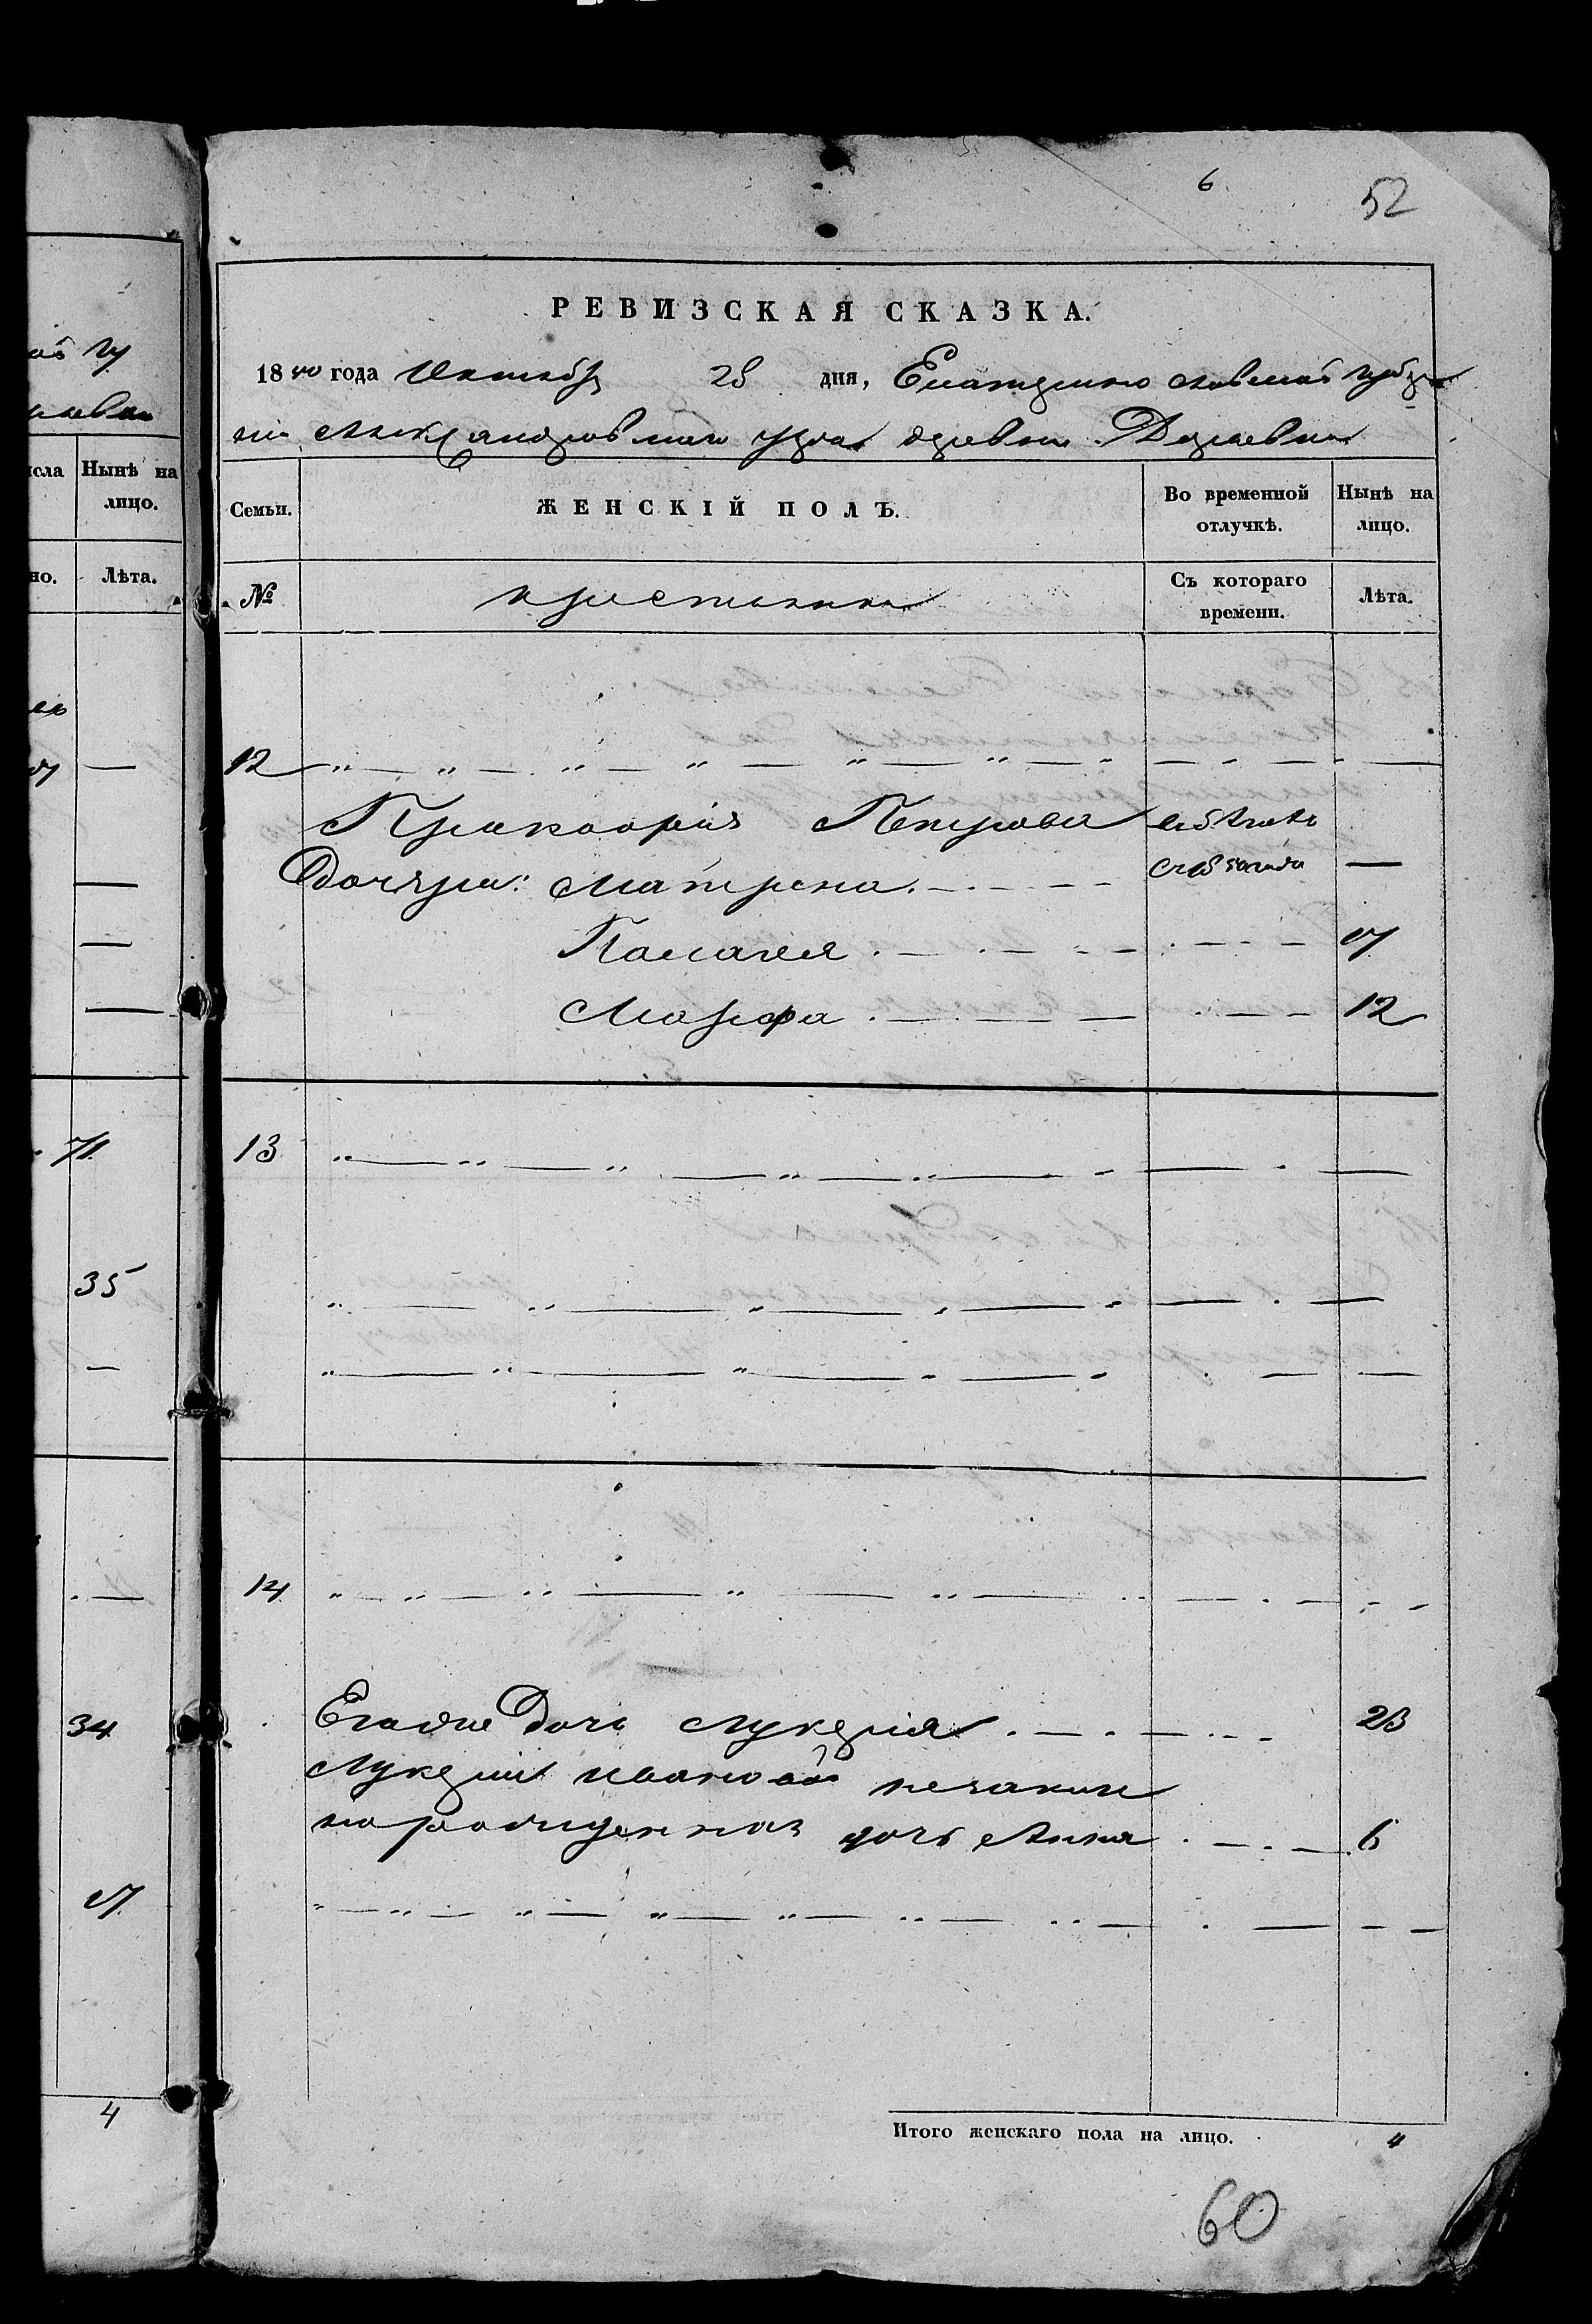 6
52
РЕВИЗСКАЯ СКАЗКА.
1850 года Октября 28 дня, Екатерино славской губер
нии Александровскаго уезда деревни
Семьи.
ЖЕНСКІЙ ПОЛЪ.
Во временной отлучкѣ.
Нынѣ на лицо.
№
крестьянки
Съ котораго времени.
Лѣта.
12
Петрова
Дочери: Матрена
Пелагея 17
Марфа 12
13
14
Его же дочь Лукерия 23
Лукерии ивановой незакон
но рожденная дочь Анна 6
Итого женскаго пола на лицо. 4
60
Нынѣ на
лицо.
Лѣта.
71
35
34
4